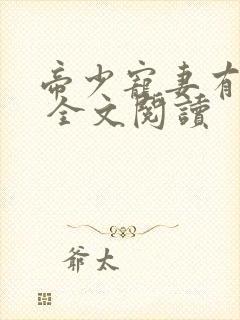 帝少寵妻有
全文閱讀
爺太